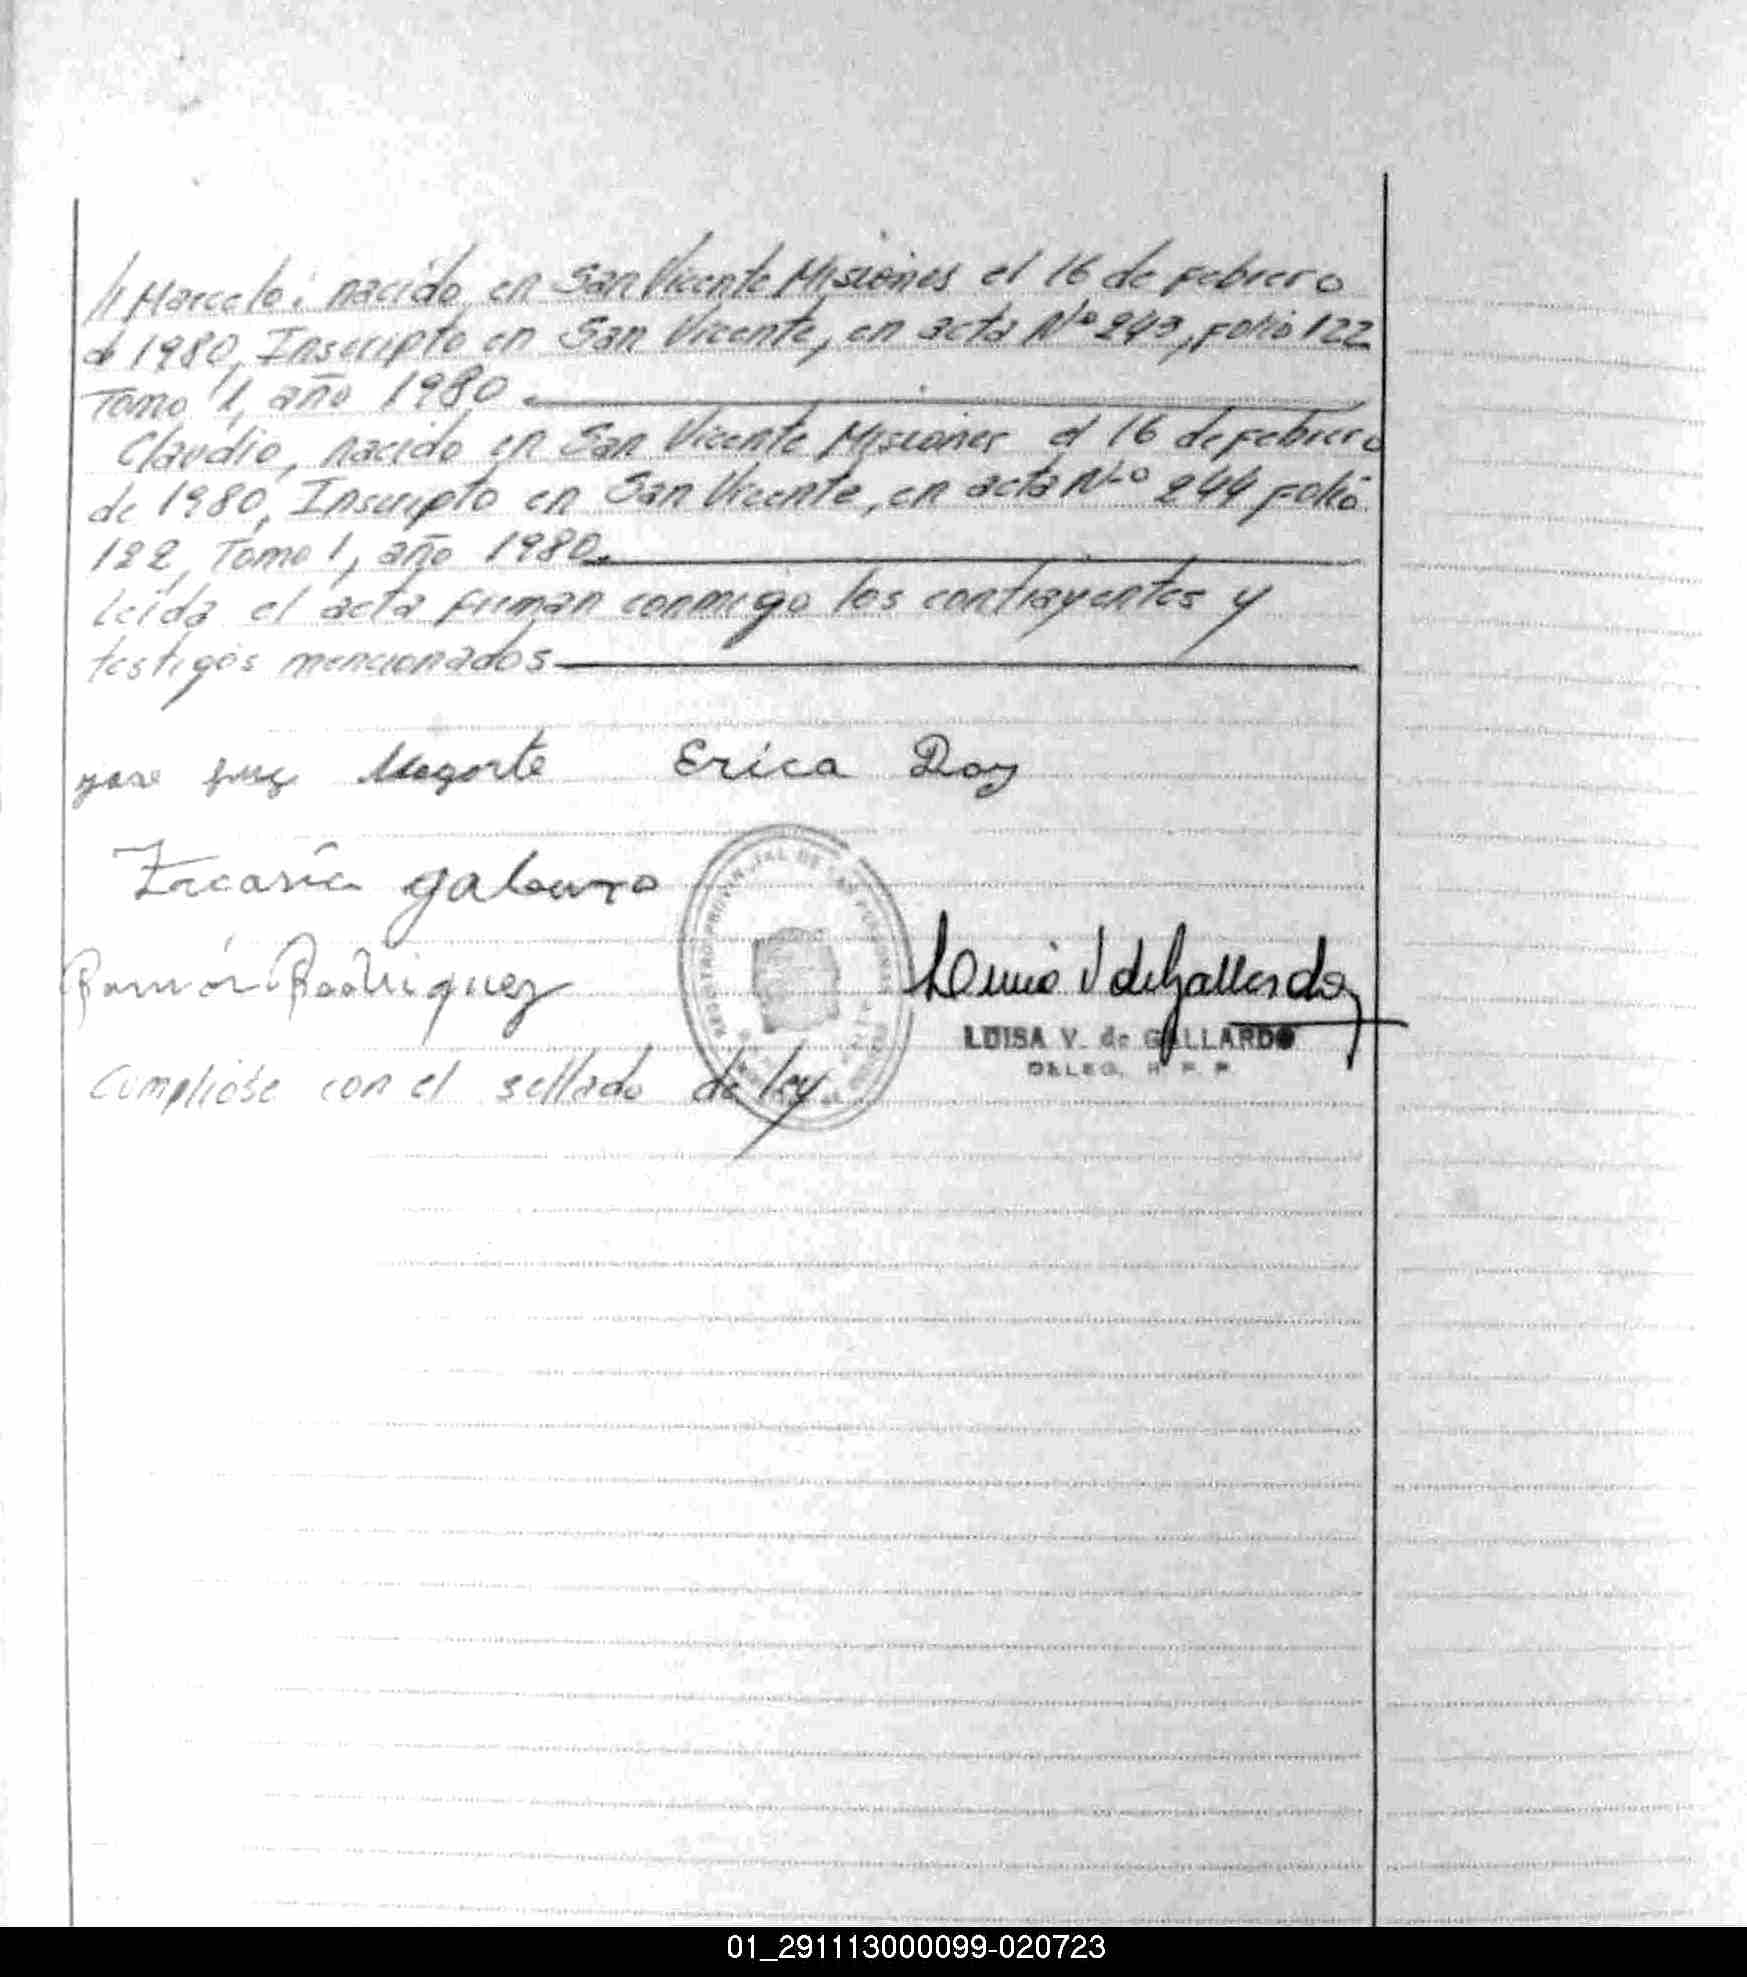 // Marcelo: nacido en San Vicente Misiones el 16 de febrero
de 1980, Inscripto en San Vicente, en acta Nº 243, folio 122
Tomo 1, año 1980.
Claudio, nacido en San Vicente Misiones el 16 de febrero
de 1980, Inscripto en San Vicente, en acta Nº 244 folio
122, Tomo 1, año 1980.
Leída el acta firman conmigo los contrayentes y
testigos mencionados
Erica
Ramón Rodriguez
LUISA V. de GALLARDO
DELEG. R. P. P.
REGISTRO PROVINCIAL DE LAS PERSONAS
Cumplióse con el sellado de ley
01_291113000099-020723